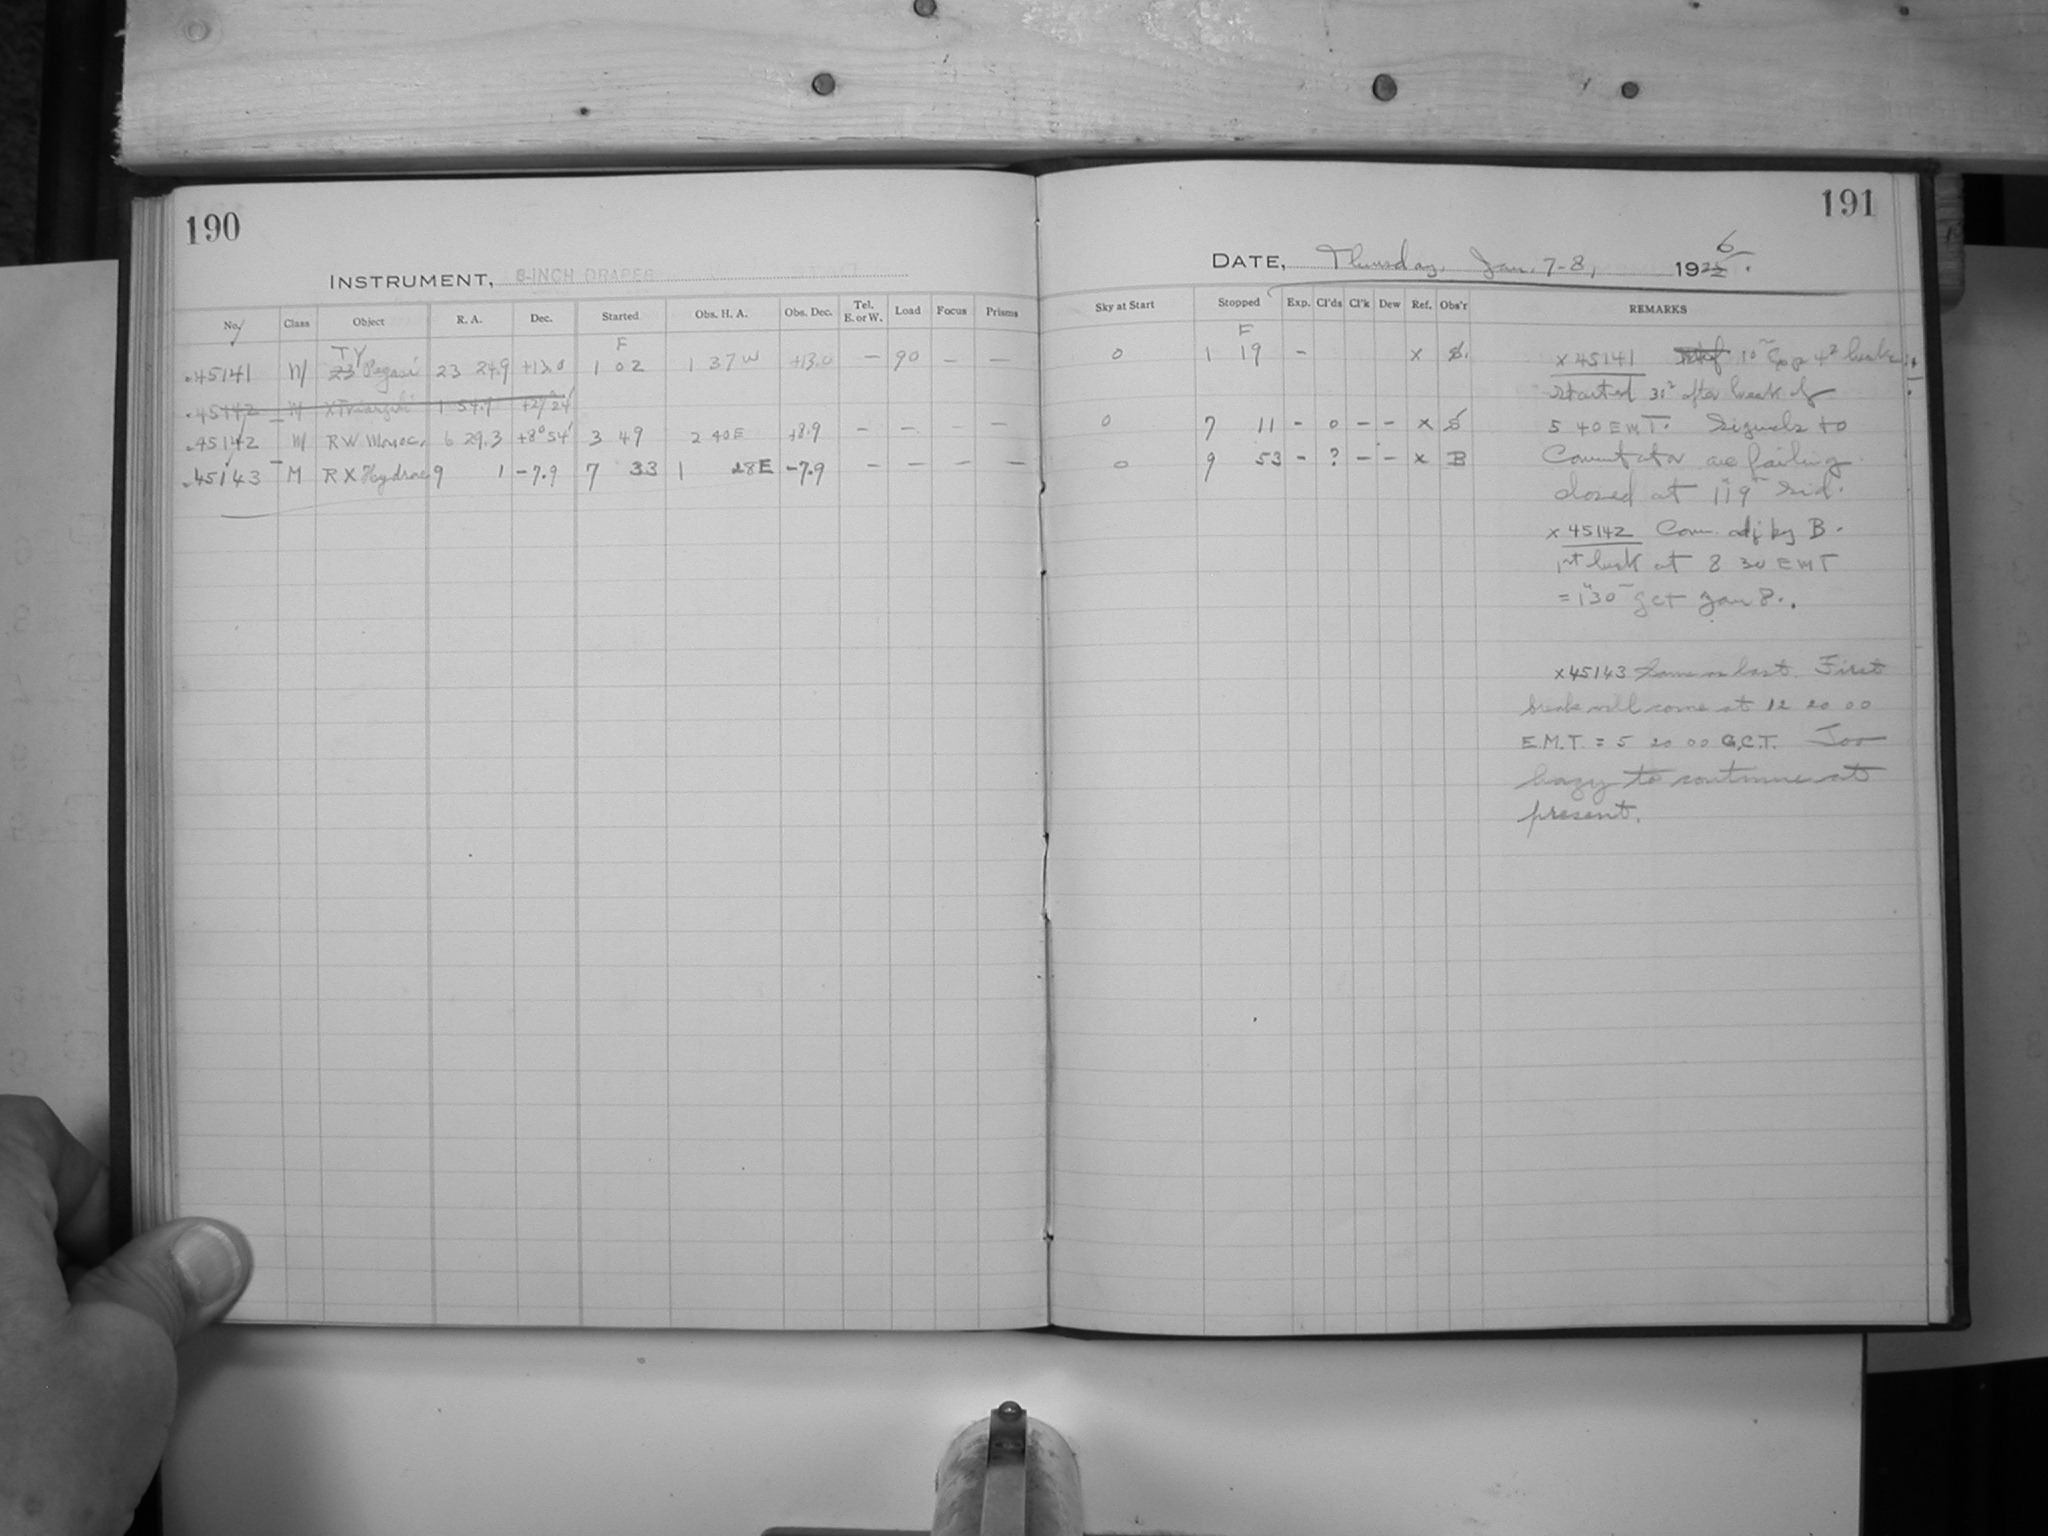 190
INSTRUMENT, 8-INCH DRAPER
No. Class Object R. A. Dec. Started Obs. H. A. Obs. Dec. Tel. E. or W. Load Focus Prisms
45141 M TY Pegasi 23 24.9 +13.0 F 1 02 1 37 W +13.0 — 90 — —
45142 M X Trianguli 1 54.9 +27°24'
45142 M RW Monoc. 6 29.3 +8°54' 3 49 2 40 E +8.9 — — — —
45143 M RX Hydrae 9 1 -7.9 7 33 1 28 E -7.9 — — — —
191
DATE, Thursday, Jan. 7-8, 1926.
Sky at Start Stopped Exp. Cl'ds Cl'k Dew Ref. Obs'r REMARKS
0 F 1 19 - x
0 7 11 - 0 - - x
0 9 53 - ? - - x B
x 45141 10m Exp 4s breaks
started 31s after break of
5 40 EMT. Signals to
Commutator are failing
closed at 1h19m Sid.
x 45142 Com. adj by B.
1st break at 8 30 EMT
= 1h30m GCT Jan 8.
x 45143 Same as last. First
break will come at 12 20 00
E.M.T. = 5 20 00 G.C.T. Too
hazy to continue at
present.